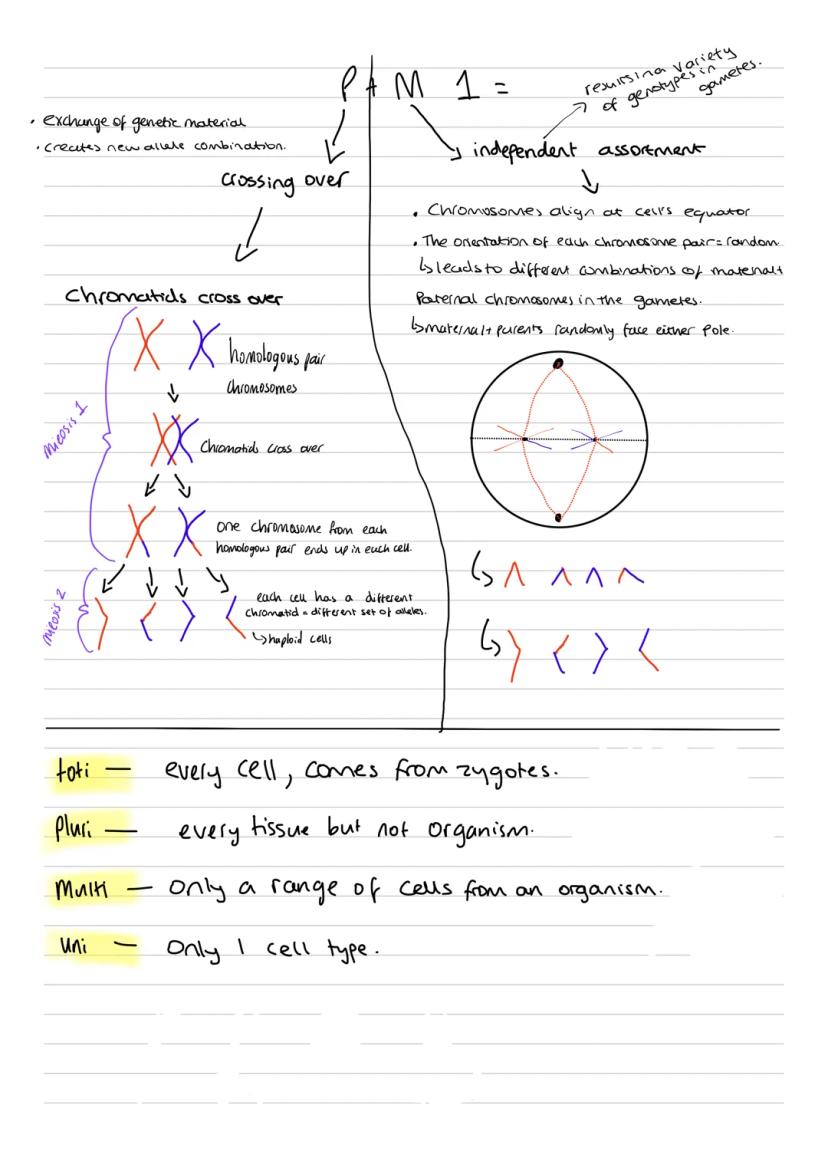 P + M 1 =
results in a variety
of genotypes in
gametes.
• exchange of genetic material
• creates new allele combination.
crossing over
Chromatids cross over
Mieosis 1
homologous pair
chromosomes
Chromatids cross over
one chromosome from each
homologous pair ends up in each cell.
mieosis 2
each cell has a different
chromatid = different set of alleles.
↳ haploid cells
independent assortment
• Chromosomes align at cell's equator
• The orientation of each chromosome pair = random
↳ leads to different combinations of maternal +
Paternal chromosomes in the gametes.
↳ maternal + parents randomly face either Pole.
toti — every cell, comes from zygotes.
Pluri — every tissue but not organism.
Multi — Only a range of cells from an organism.
Uni — Only 1 cell type.